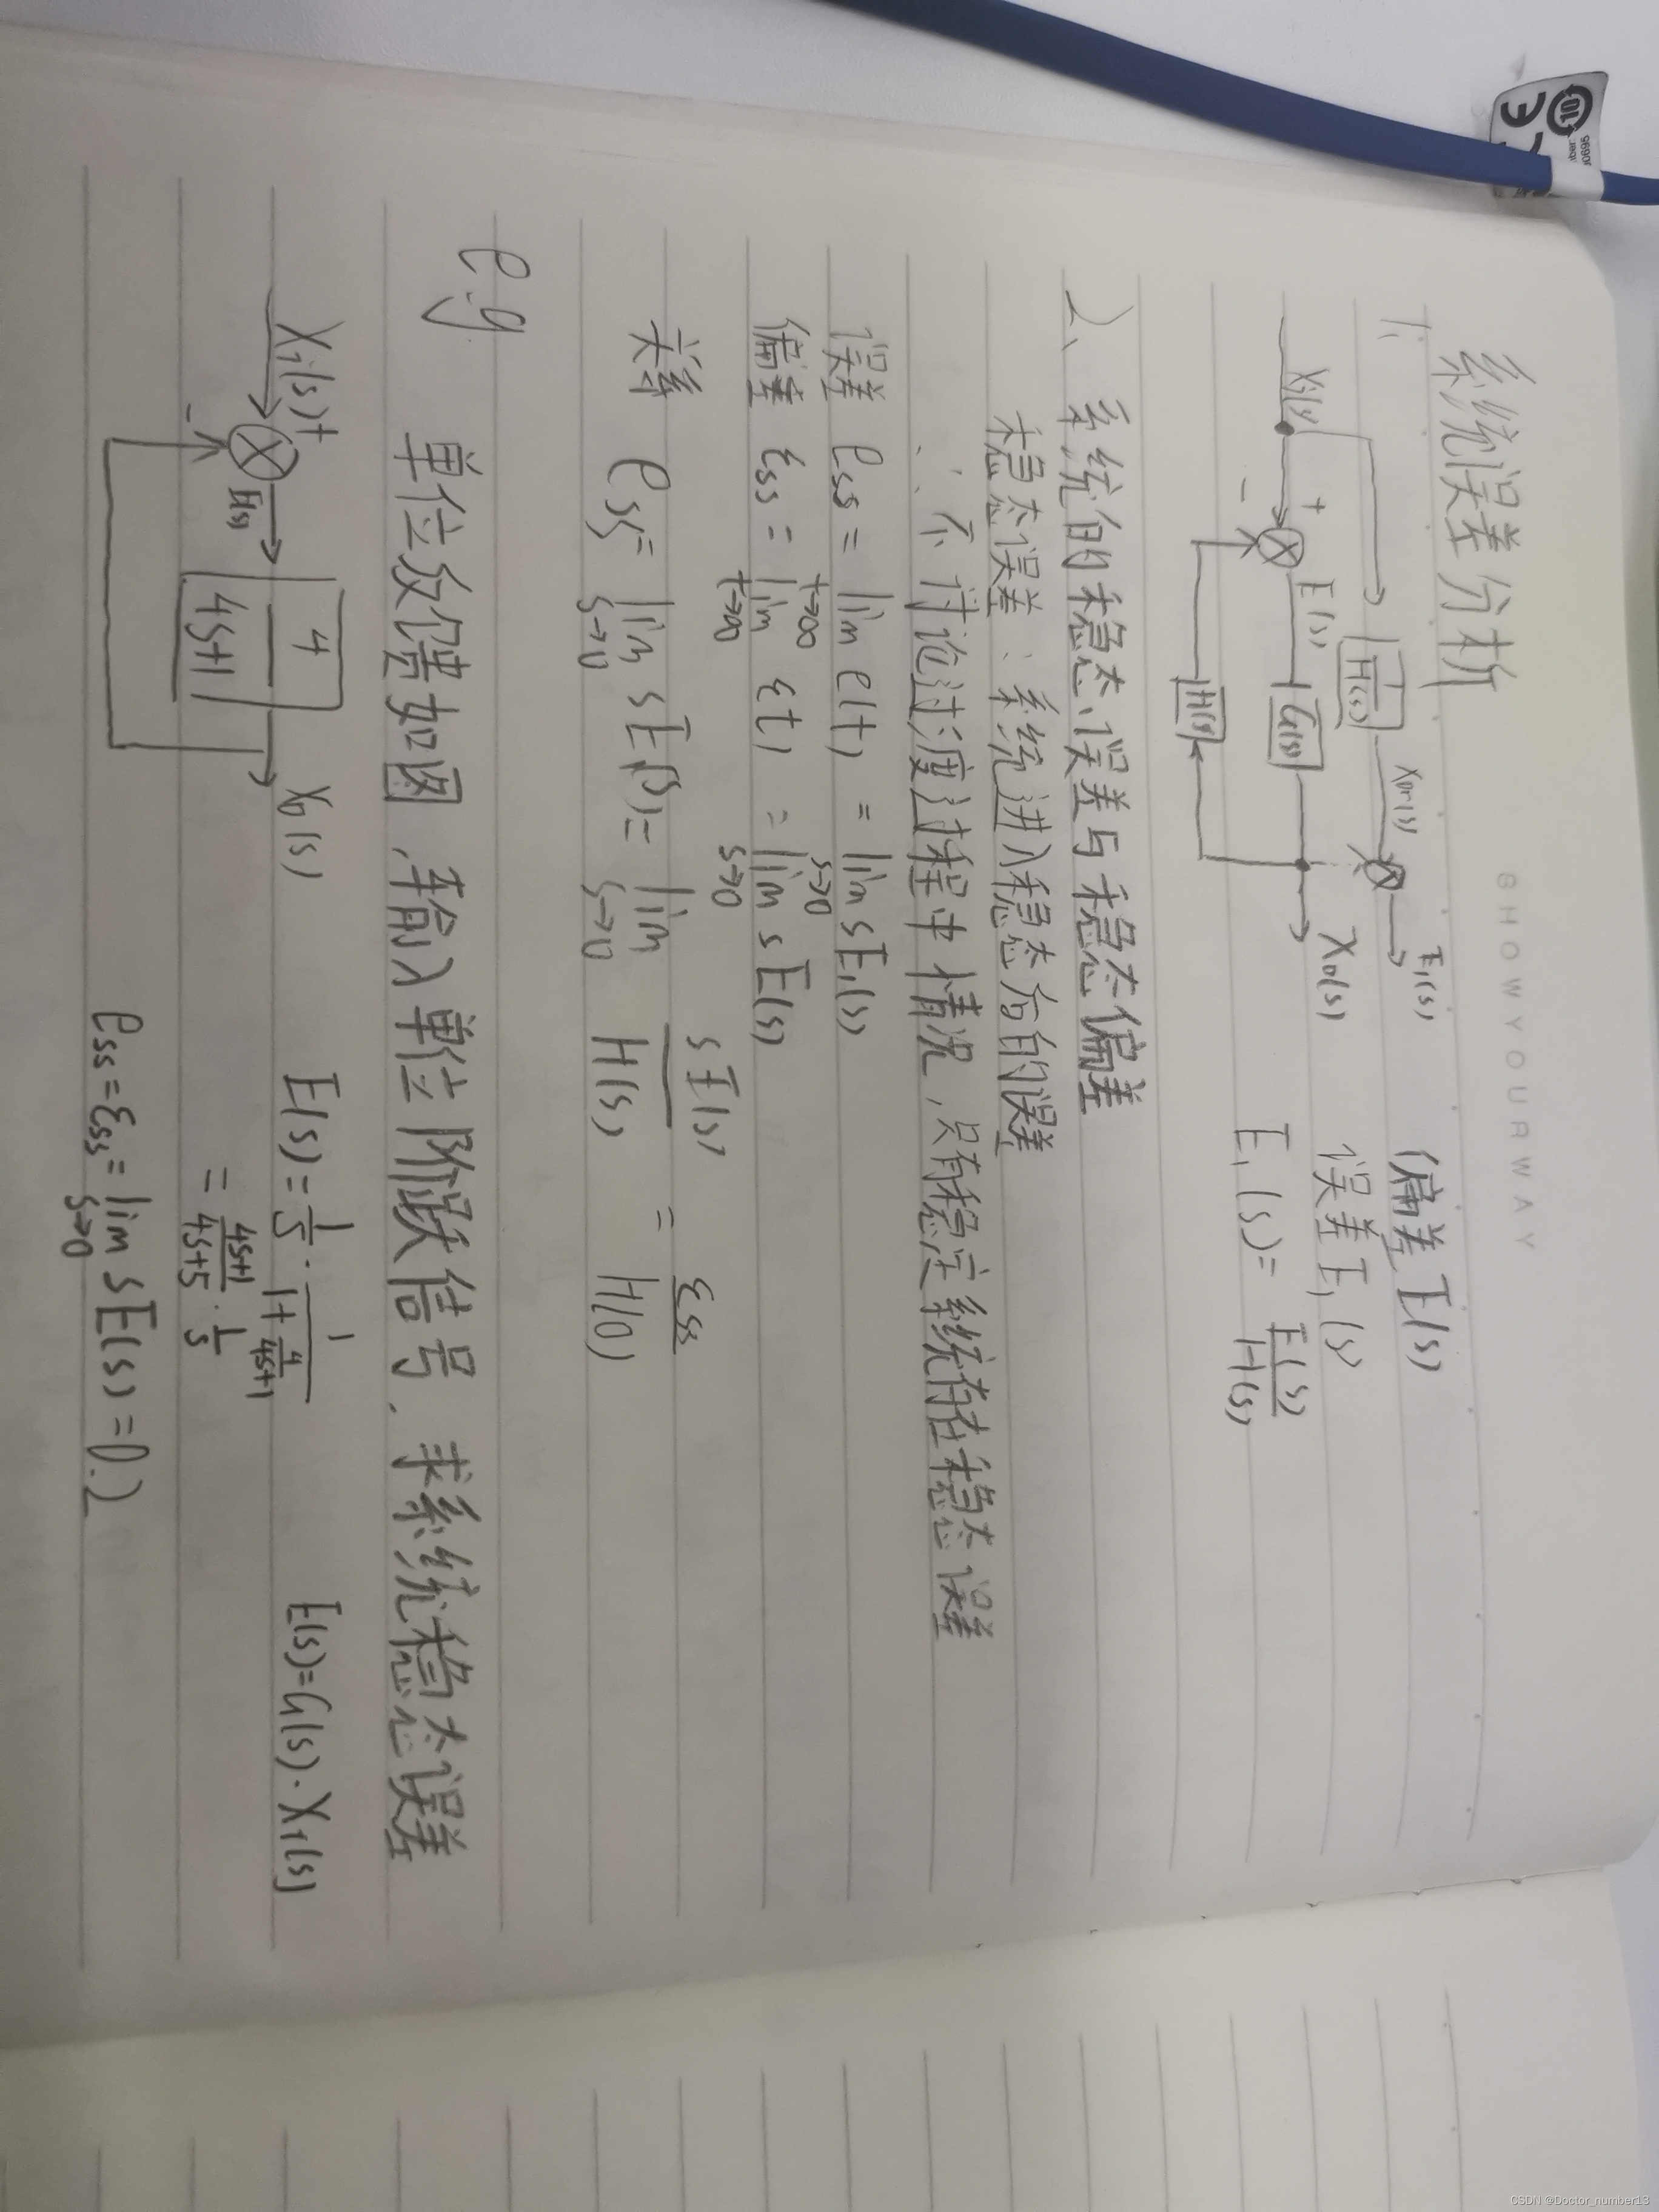 SHOWYOURWAY
系统误差分析
1、
Xi(s) + - E(s) G(s) H(s) Xo(s)
1/H(s) Xor(s) E₁(s)
偏差 E(s)
误差 E₁(s)
E₁(s) = E(s)/H(s)
2、系统的稳态误差与稳态偏差
稳态误差：系统进入稳态后的误差
∴ 不讨论过渡过程中情况，只有稳定系统存在稳态误差
误差 ess = lim t→∞ e(t) = lim s→0 sE₁(s)
偏差 εss = lim t→∞ ε(t) = lim s→0 sE(s)
关系 ess = lim s→0 sE₁(s) = lim s→0 sE(s)/H(s) = εss/H(0)
e.g 单位反馈如图，输入单位阶跃信号，求系统稳态误差
Xi(s) + - E(s) 4/4s+1 Xo(s)
E(s) = 1/s · 1/1+4/4s+1 E(s)=G(s)·Xi(s)
= 4s+1/4s+5 · 1/s
ess = εss = lim s→0 sE(s) = 0.2
CSDN @Doctor_number13